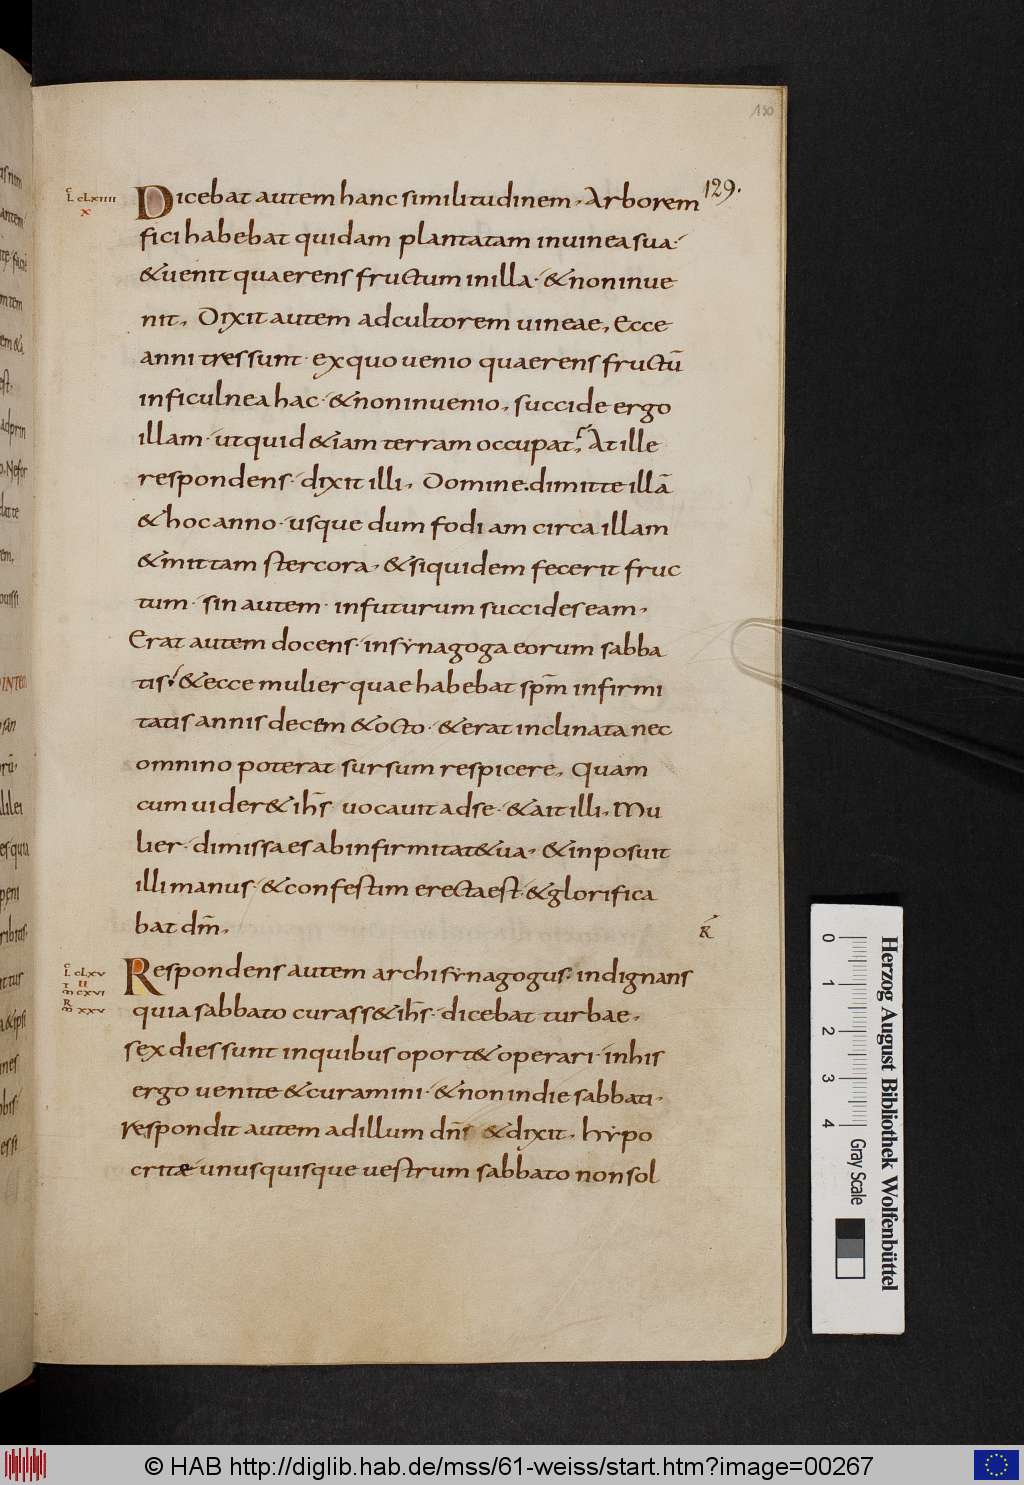 130
129.
L CLXIIII
X
Dicebat autem hanc similitudinem. Arborem
fici habebat quidam plantatam inuinea sua.
& uenit quaerens fructum inilla. & noninue
nit. Dixit autem adcultorem uineae. Ecce
anni tres sunt. ex quo uenio quaerens fructū
inficulnea hac. & noninuenio. succide ergo
illam. utquid & iam terram occupat. At ille
respondens. dixit illi. Domine. dimitte illā
& hoc anno. usque dum fodiam circa illam
& mittam stercora. & siquidem fecerit fruc
tum. sin autem. infuturum succides eam.
Erat autem docens. insynagoga eorum sabba
tis. & ecce mulier quae habebat spm̄ infirmi
tatis annis decem & octo. & erat inclinata nec
omnino poterat sursum respicere. Quam
cum uider& ihs̄ uocauit adse. & ait illi. Mu
lier. dimissa es abinfirmitat& ua. & inposuit
illi manus. & confestim erecta est. & glorifica
bat dm̄.
L CLXV
II
m CXVI
m XXV
Respondens autem archisynagogus. indignans
quia sabbato curass& ihs̄. dicebat turbae.
sex dies sunt inquibus oport& operari. inhis
ergo uenite & curamini. & non indie sabbati.
Respondit autem adillum dns̄ & dixit. hypo
critae unusquisque uestrum sabbato non sol
0 1 2 3 4
Gray Scale
Herzog August Bibliothek Wolfenbüttel
© HAB http://diglib.hab.de/mss/61-weiss/start.htm?image=00267